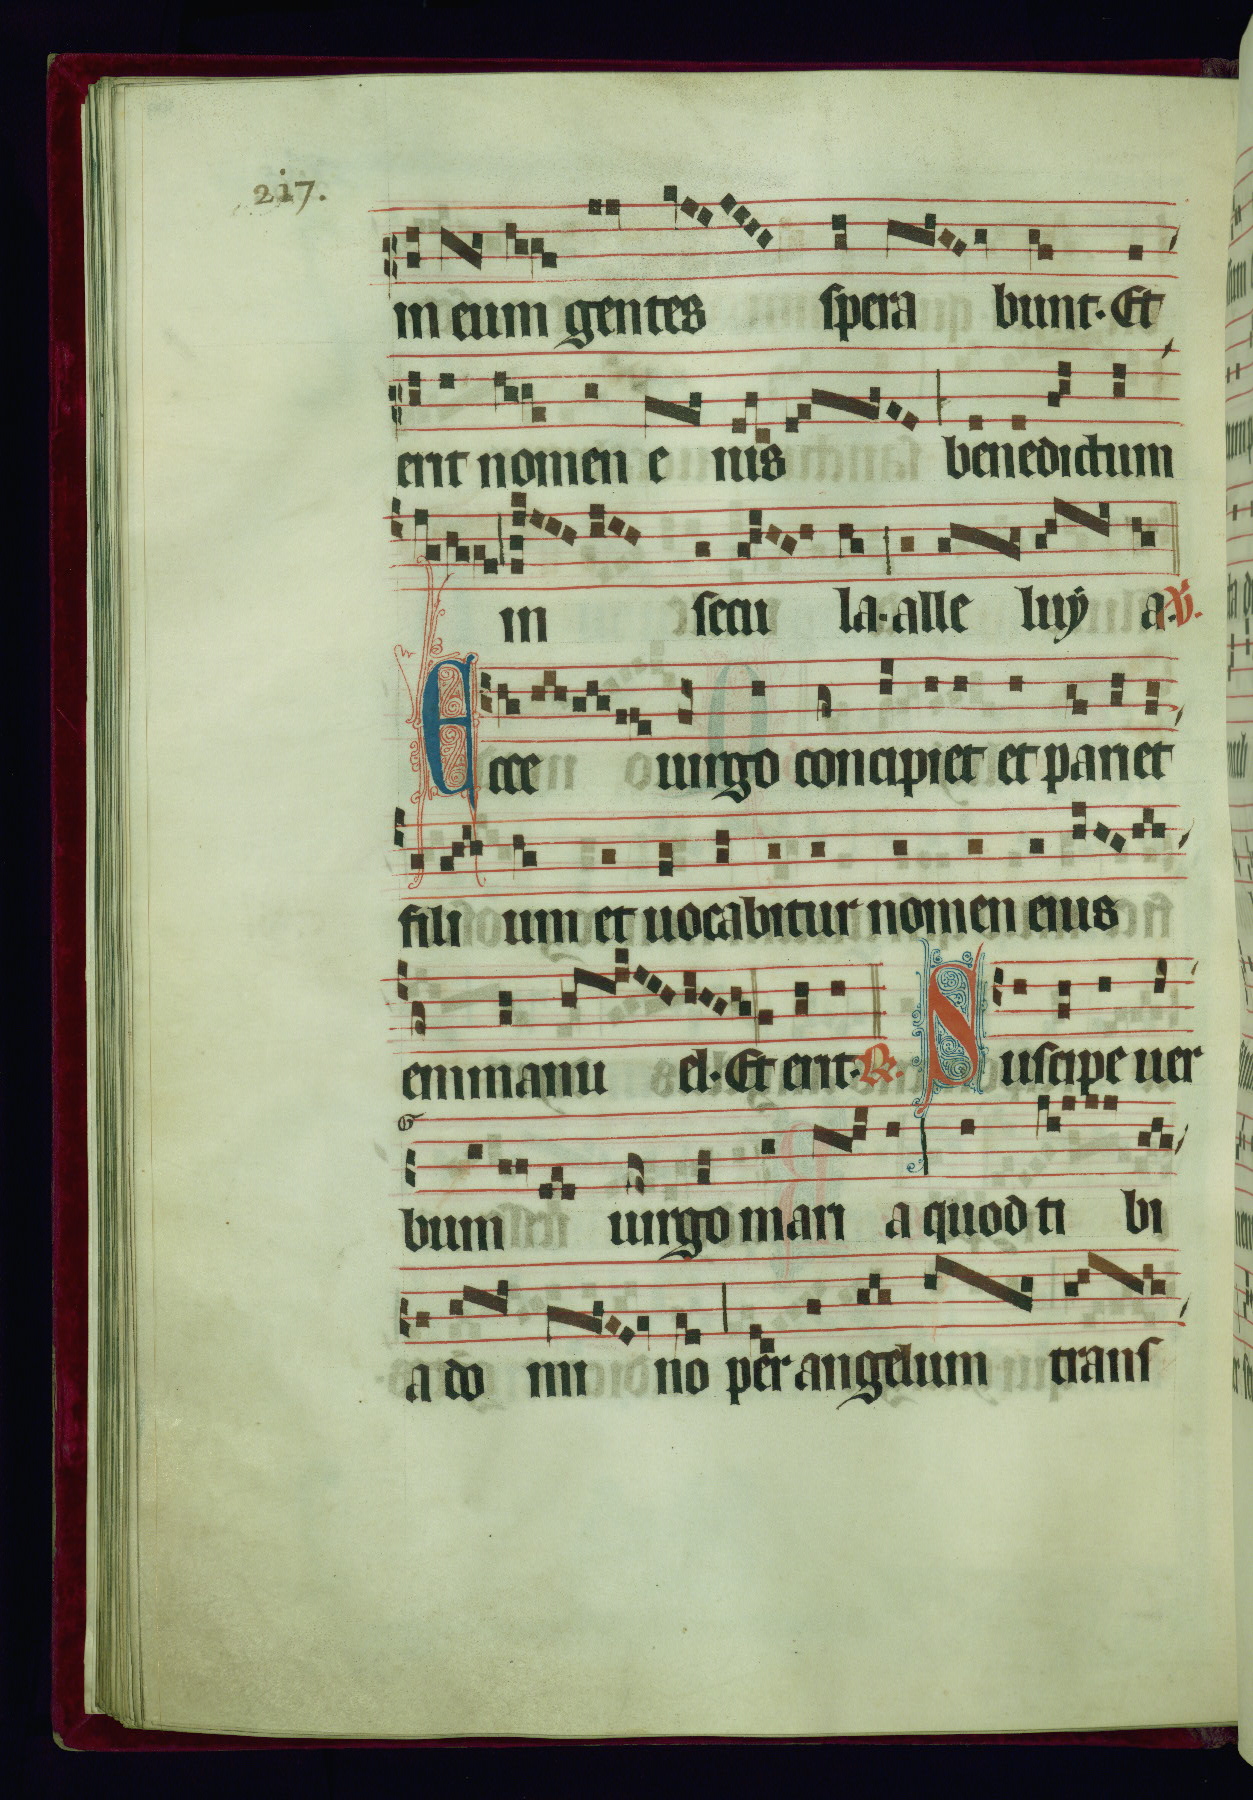 217.
in eum gentes spera bunt. Et
erit nomen e ius benedictum
in secu la. alle luÿ a. ℣.
Ecce uirgo concipiet et pariet
fili um et uocabitur nomen eius
emmanu el. Et erit. ℟. Suscipe uer
G
bum uirgo mari a quod ti bi
a do mi no per angelum trans